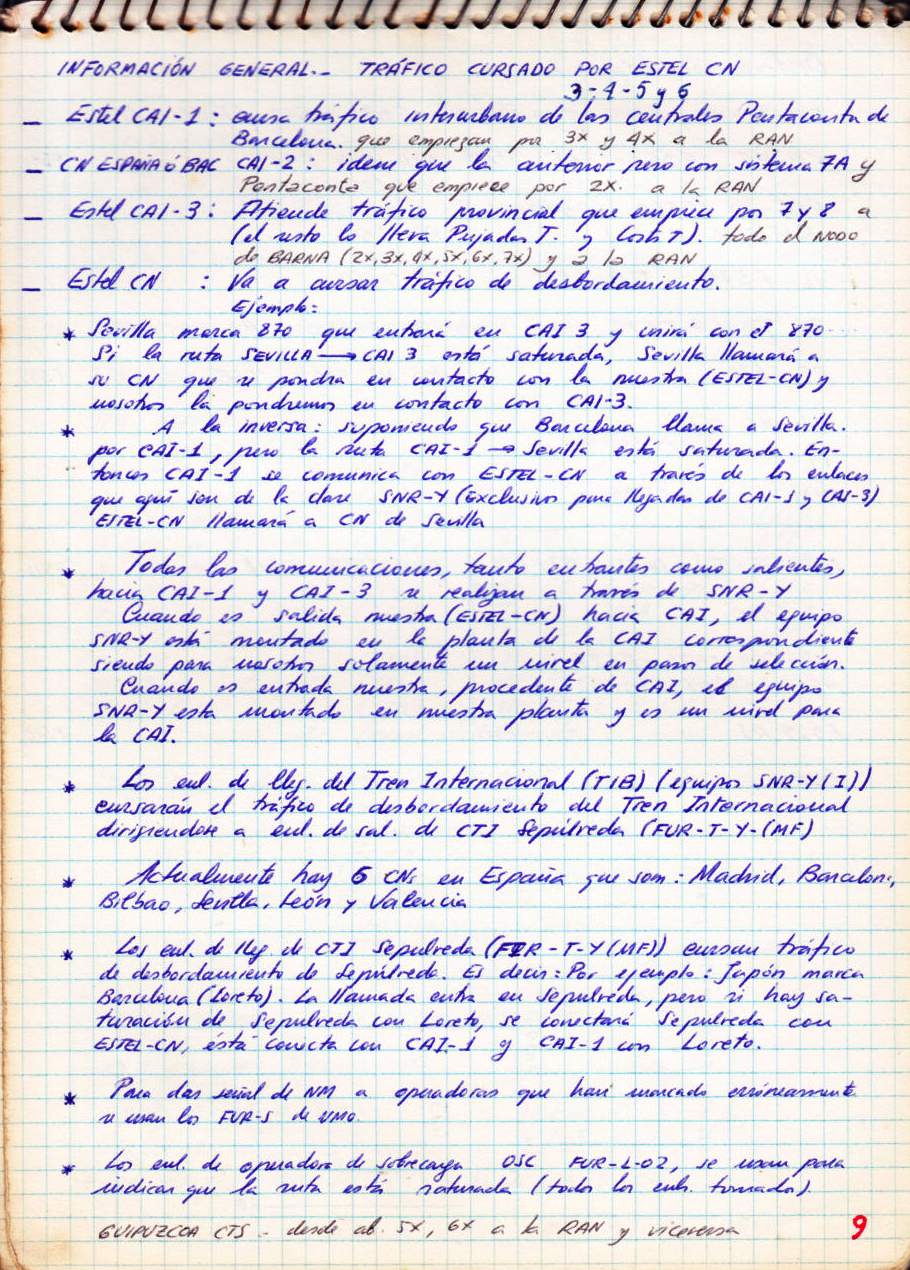 INFORMACIÓN GENERAL.- TRÁFICO CURSADO POR ESTEL CN
3-4-5 y 6
- Estel CAI-1 : cursa tráfico interurbano de las centrales Pentaconta de
Barcelona. que empiezan por 3X y 4X a la RAN
- CN ESPAÑA ó BAC CAI-2 : idem que la anterior pero con sistema 7A y
Pentaconta que empiece por 2X. a la RAN
- Estel CAI-3 : Atiende tráfico provincial que empiece por 7 y 8 a
(el resto lo lleva Pujadas T. y Costs T). todo el NODO
de BARNA (2X,3X,4X,5X,6X,7X) y a la RAN
- Estel CN : Va a cursar tráfico de desbordamiento.
Ejemplo:
* Sevilla marca 870 que entrará en CAI 3 y unirá con el 870---
Si la ruta SEVILLA → CAI 3 está saturada, Sevilla llamará a
su CN que se pondra en contacto con la nuestra (ESTEL-CN) y
nosotros la pondremos en contacto con CAI-3.
* A la inversa: suponiendo que Barcelona llama a Sevilla.
por CAI-1, pero la ruta CAI-1 → Sevilla está saturada. En-
tonces CAI-1 se comunica con ESTEL-CN a través de los enlaces
que aquí son de la clase SNR-Y (Exclusivos para llegadas de CAI-1 y CAI-3)
ESTEL-CN llamará a CN de Sevilla
* Todas las comunicaciones, tanto entrantes como salientes,
hacia CAI-1 y CAI-3 se realizan a través de SNR-Y
Cuando es salida nuestra (ESTEL-CN) hacia CAI, el equipo
SNR-Y está montado en la planta de la CAI correspondiente
siendo para nosotros solamente un nivel en pasos de selección.
Cuando es entrada nuestra, procedente de CAI, el equipo
SNR-Y esta montado en nuestra planta y es un nivel para
la CAI.
* Los enl. de lleg. del Tren Internacional (TIB) (equipos SNR-Y(I))
cursarán el tráfico de desbordamiento del Tren Internacional
dirigiendose a enl. de sal. de CTI Sepúlveda (FUR-T-Y-(MF)
* Actualmente hay 6 CNs en España que son: Madrid, Barcelona,
Bilbao, Sevilla, León y Valencia
* Los enl. de lleg de CTI Sepulveda (FIR-T-Y(MF)) cursan tráfico
de desbordamiento de Sepúlveda. Es decir: Por ejemplo: Japón marca
Barcelona (Loreto). La llamada entra en Sepulveda, pero si hay sa-
turación de Sepulveda con Loreto, se conectará Sepulveda con
ESTEL-CN, ésta conecta con CAI-1 y CAI-1 con Loreto.
* Para dar señal de NM a operadoras que han marcado erróneamente
se usan los FUR-S de VMO.
* Los enl. de operadora de sobrecarga OSC FUR-L-02, se usan para
indicar que la ruta está saturada (todos los enls. tomados).
GUIPUZCOA CTS - desde ab. 5X, 6X a la RAN y viceversa
9